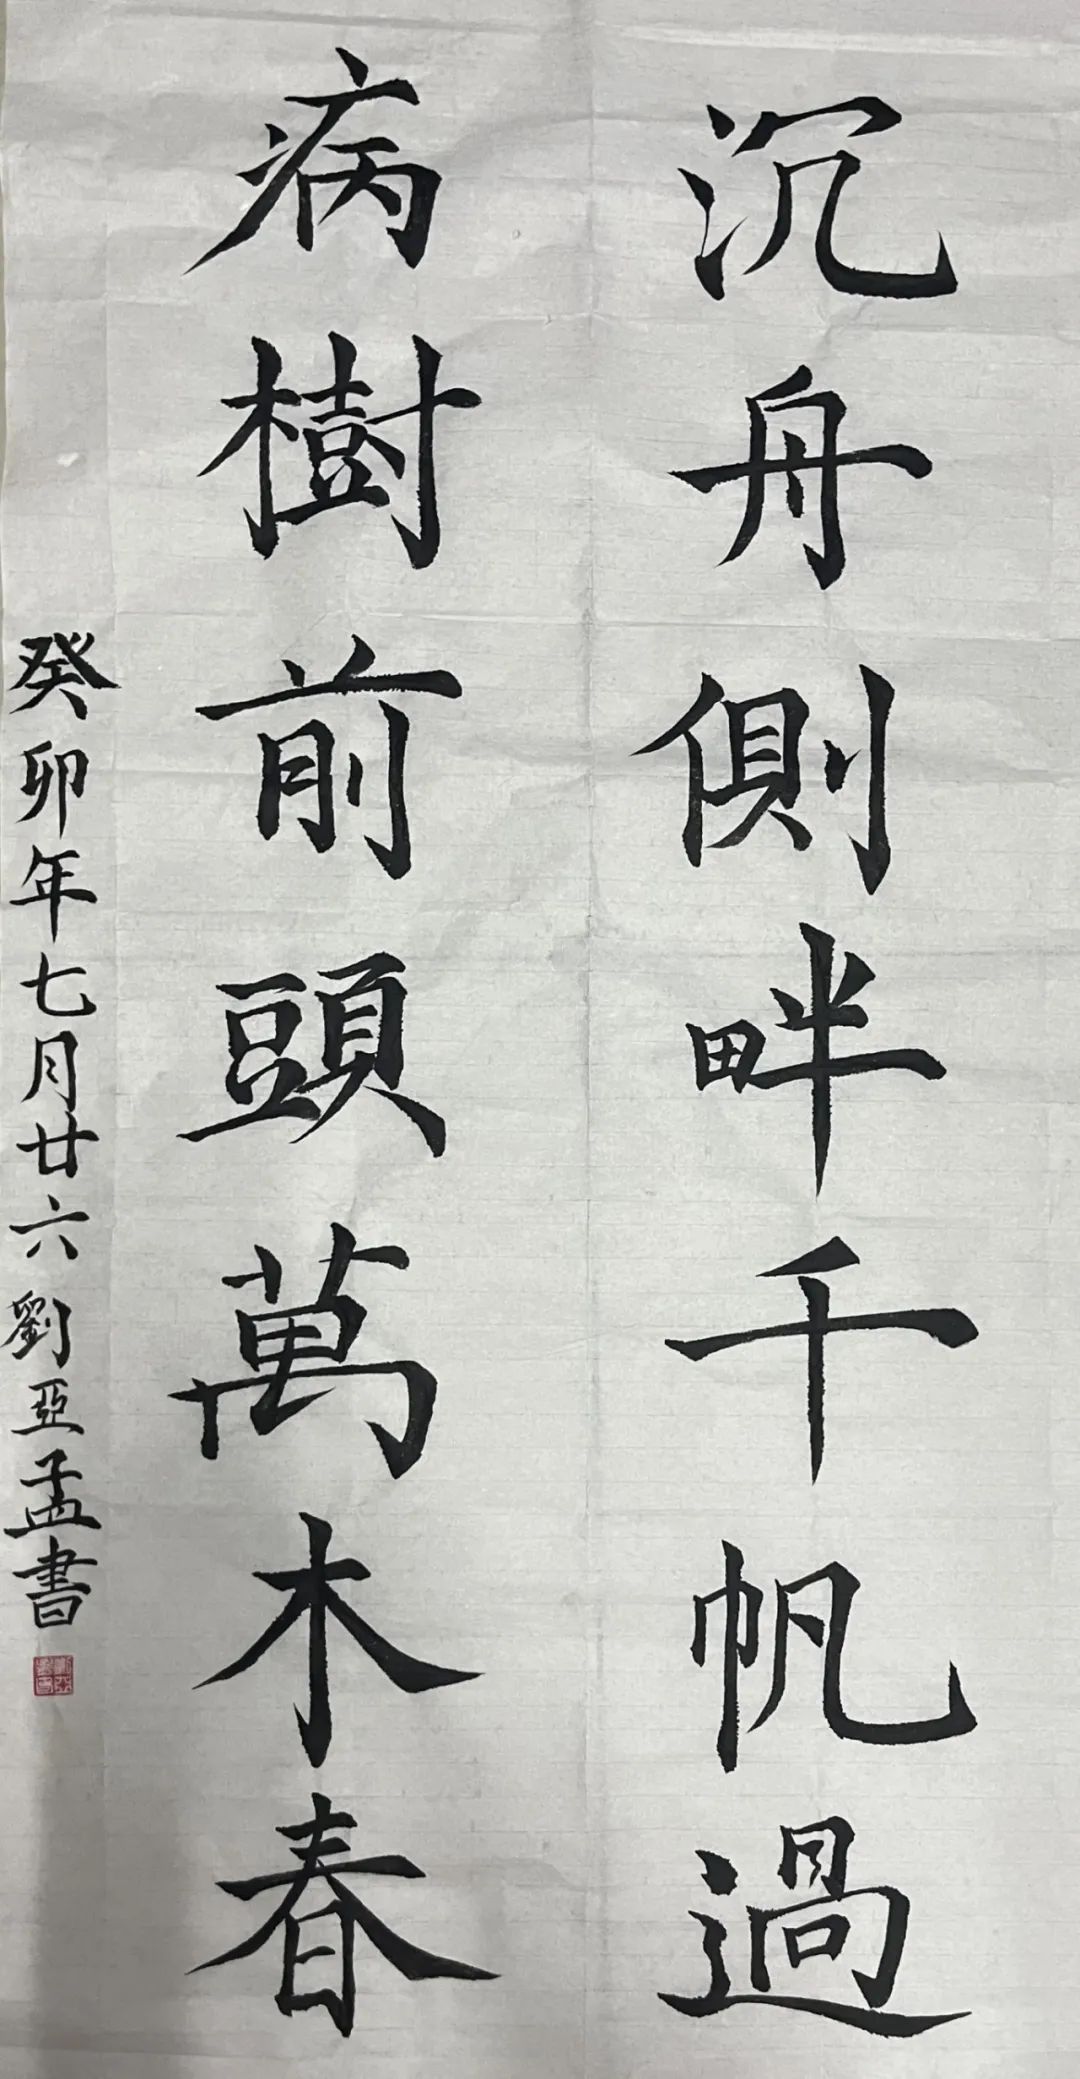 沉舟側畔千帆過
病樹前頭萬木春
癸卯年七月廿六劉亞孟書